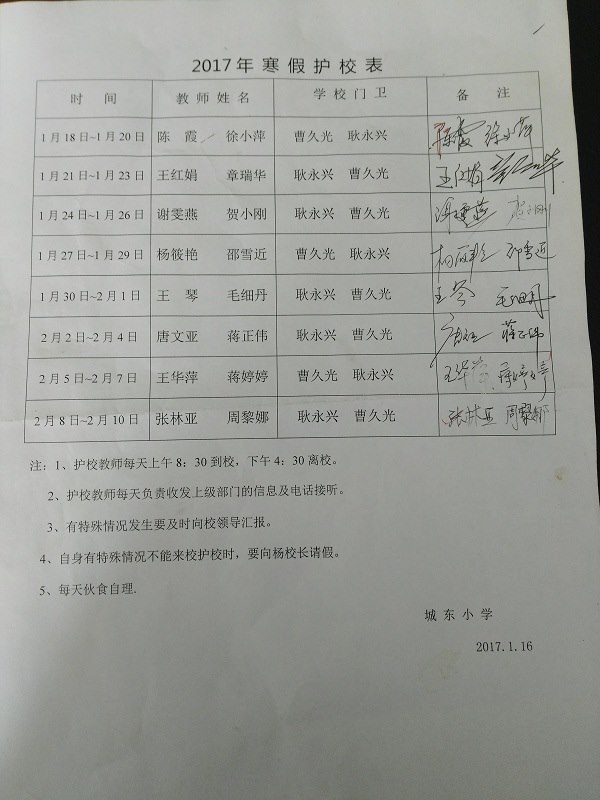 2017年寒假护校表
时 间 教师姓名 学校门卫 备 注
1月18日~1月20日 陈 霞 徐小萍 曹久光 耿永兴 陈霞 徐小萍
1月21日~1月23日 王红娟 章瑞华 耿永兴 曹久光 王红娟
1月24日~1月26日 谢雯燕 贺小刚 曹久光 耿永兴 谢雯燕 贺小刚
1月27日~1月29日 杨筱艳 邵雪近 曹久光 耿永兴 邵雪近
1月30日~2月1日 王 琴 毛细丹 耿永兴 曹久光 王琴 毛细丹
2月2日~2月4日 唐文亚 蒋正伟 耿永兴 曹久光 蒋正伟
2月5日~2月7日 王华萍 蒋婷婷 曹久光 耿永兴 王华萍 蒋婷婷
2月8日~2月10日 张林亚 周黎娜 耿永兴 曹久光 张林亚 周黎娜
注：1、护校教师每天上午8：30到校，下午4：30离校。
2、护校教师每天负责收发上级部门的信息及电话接听。
3、有特殊情况发生要及时向校领导汇报。
4、自身有特殊情况不能来校护校时，要向杨校长请假。
5、每天伙食自理.
城东小学
2017.1.16